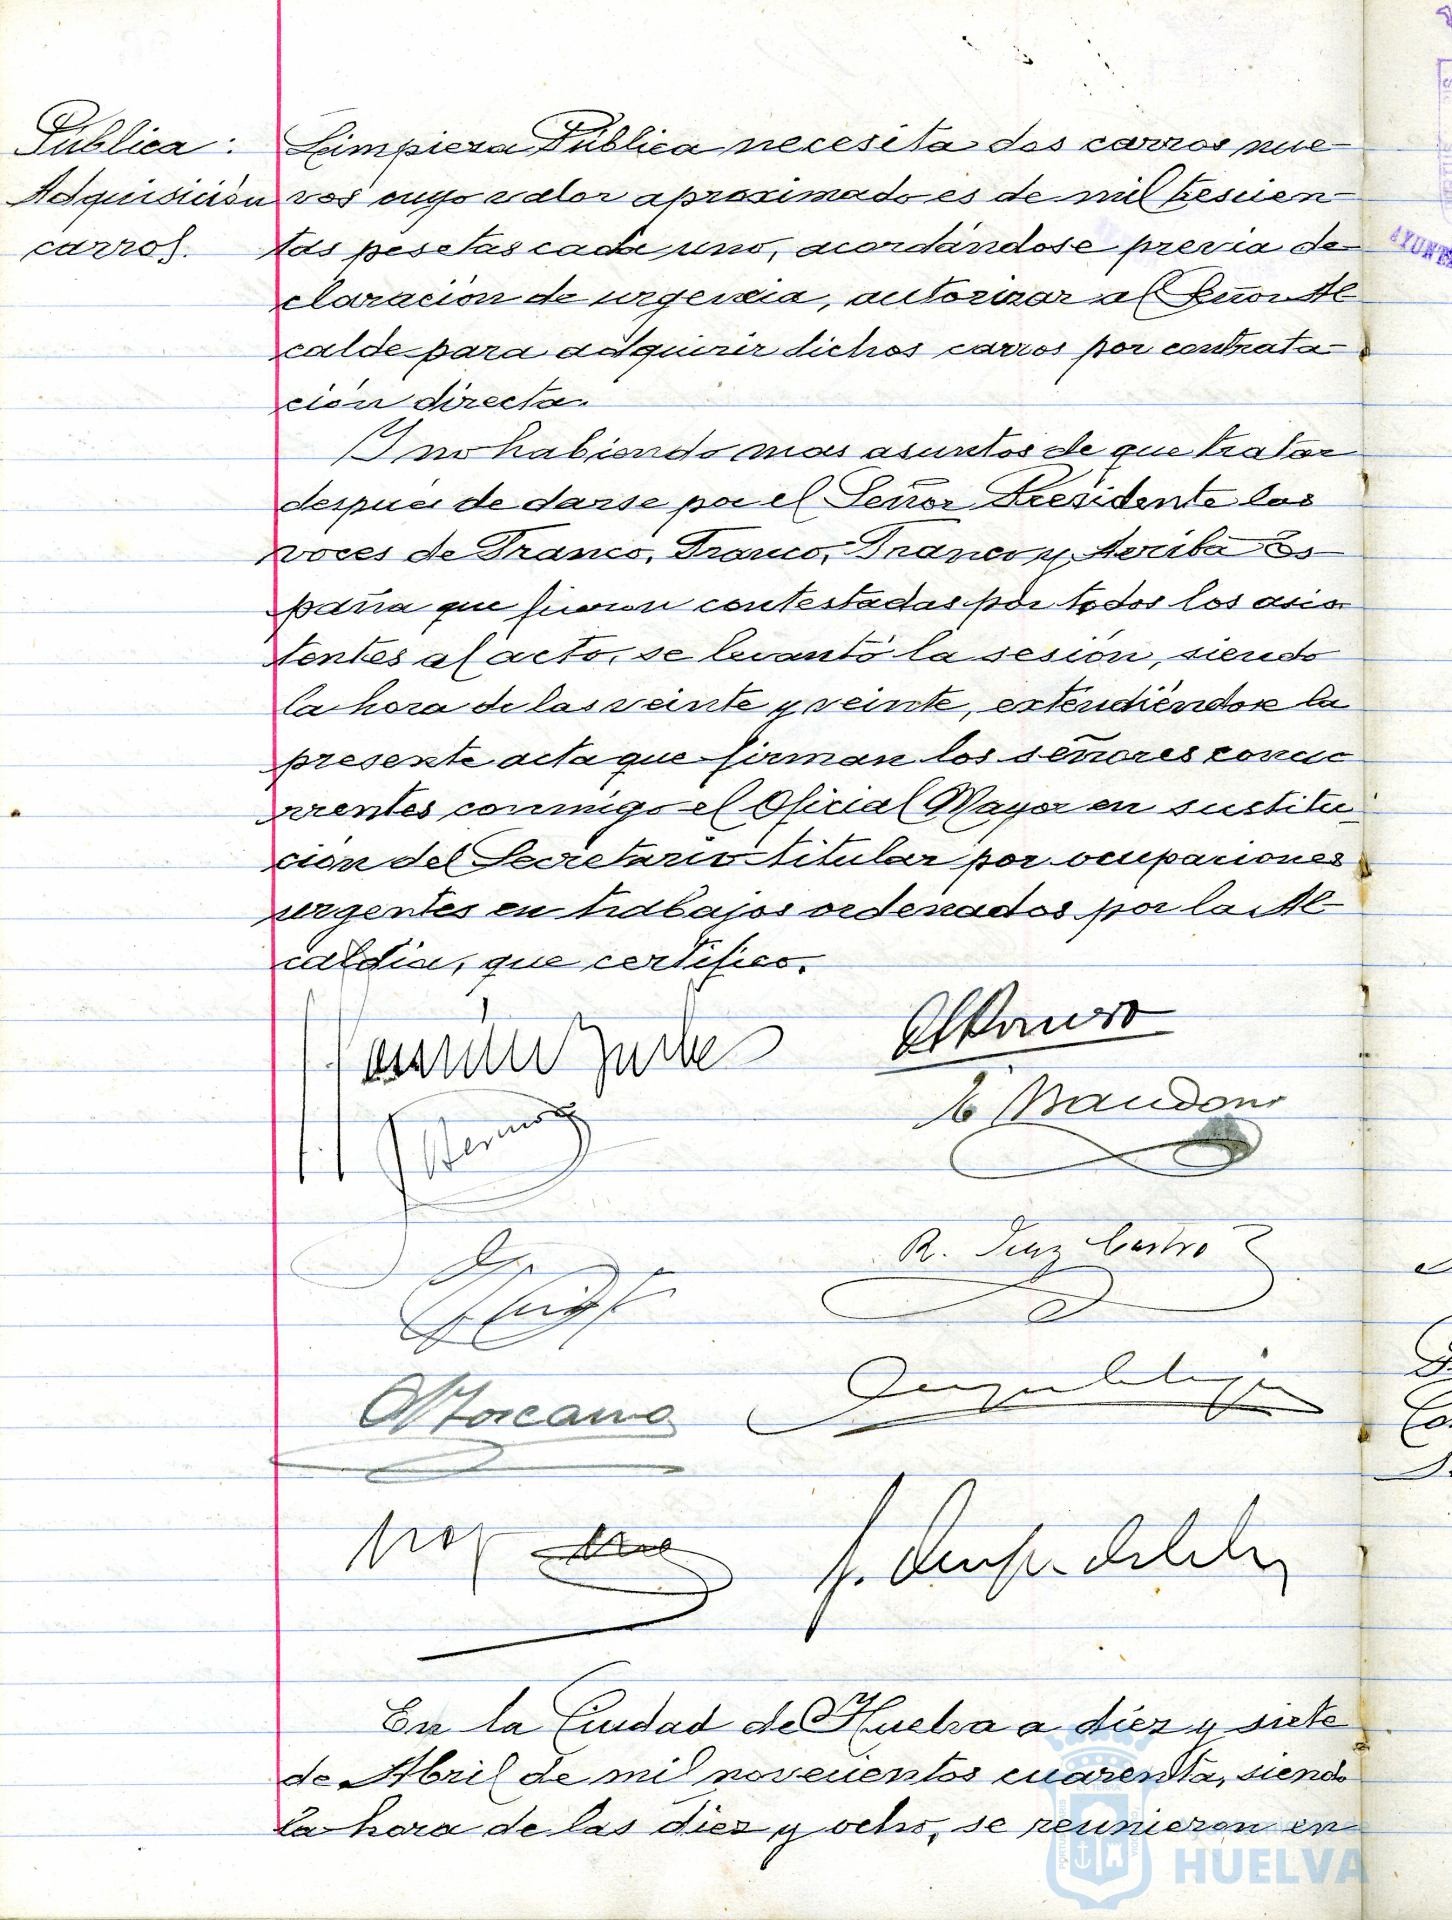 Pública:
Adquisición
carros.
Limpieza Pública necesita dos carros nue-
vos cuyo valor aproximado es de mil trescien-
tas pesetas cada uno, acordándose previa de-
claración de urgencia, autorizar al Señor Al-
calde para adquirir dichos carros por contrata-
ción directa.
Y no habiendo mas asuntos de que tratar
después de darse por el Señor Presidente las
voces de Franco, Franco, Franco y Arriba Es-
paña que fueron contestadas por todos los asis-
tentes al acto, se levantó la sesión, siendo
la hora de las veinte y veinte, extendiéndose la
presente acta que firman los señores concu-
rrentes conmigo el Oficial Mayor en sustitu-
ción del Secretario titular por ocupaciones
urgentes en trabajos ordenados por la Al-
caldía, que certifico.
R. Díaz Castro
En la Ciudad de Huelva a diez y siete
de Abril de mil novecientos cuarenta, siendo
la hora de las diez y ocho, se reunieron en
HUELVA